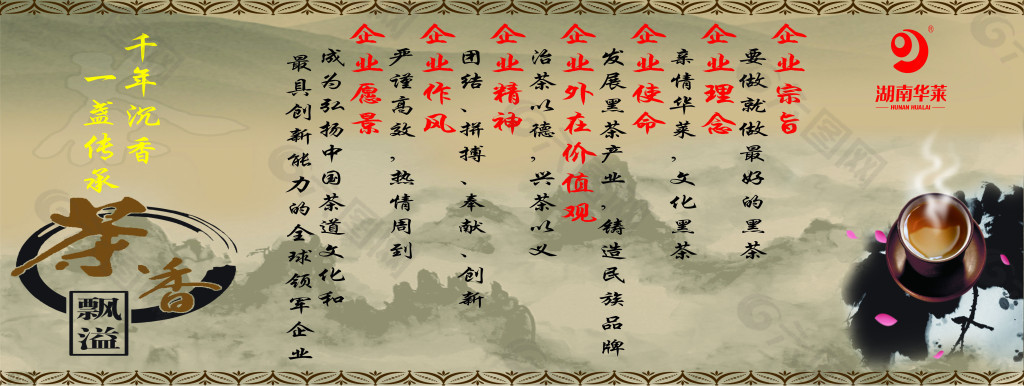 湖南华莱
HUNAN HUALAI
®
企业宗旨
要做就做最好的黑茶
企业理念
亲情华莱,文化黑茶
企业使命
发展黑茶产业,铸造民族品牌
企业外在价值观
治茶以德,兴茶以义
企业精神
团结、拼搏、奉献、创新
企业作风
严谨高效,热情周到
企业愿景
成为弘扬中国茶道文化和
最具创新能力的全球领军企业
千年沉香
一盏传承
茶香
飘溢